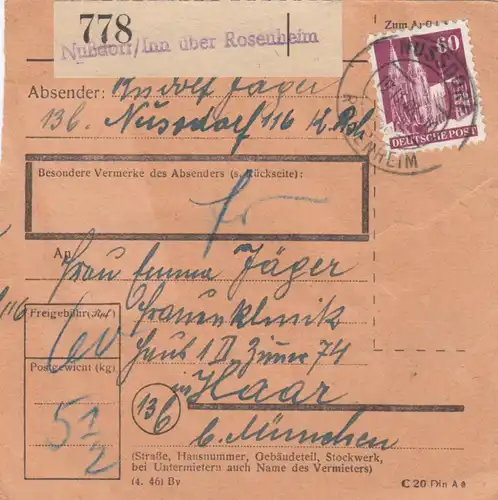 778
Nußdorf/Inn über Rosenheim
Zum A
60
NUSSDORF
DEUTSCHE POST
ROSENHEIM
Absender: Rudolf Jäger
13b. Nussdorf 116
Besondere Vermerke des Absenders (s. Rückseite):
fr
An
Frau Emma Jäger
Frauenklinik
Haus 1 II Zimmer 74
in Haar
b. München
13b
116
Freigebühr (Rpf)
60
Postgewicht (kg)
5 1/2
(Straße, Hausnummer, Gebäudeteil, Stockwerk,
bei Untermietern auch Name des Vermieters)
(4. 46) By
C 20 Din A 6